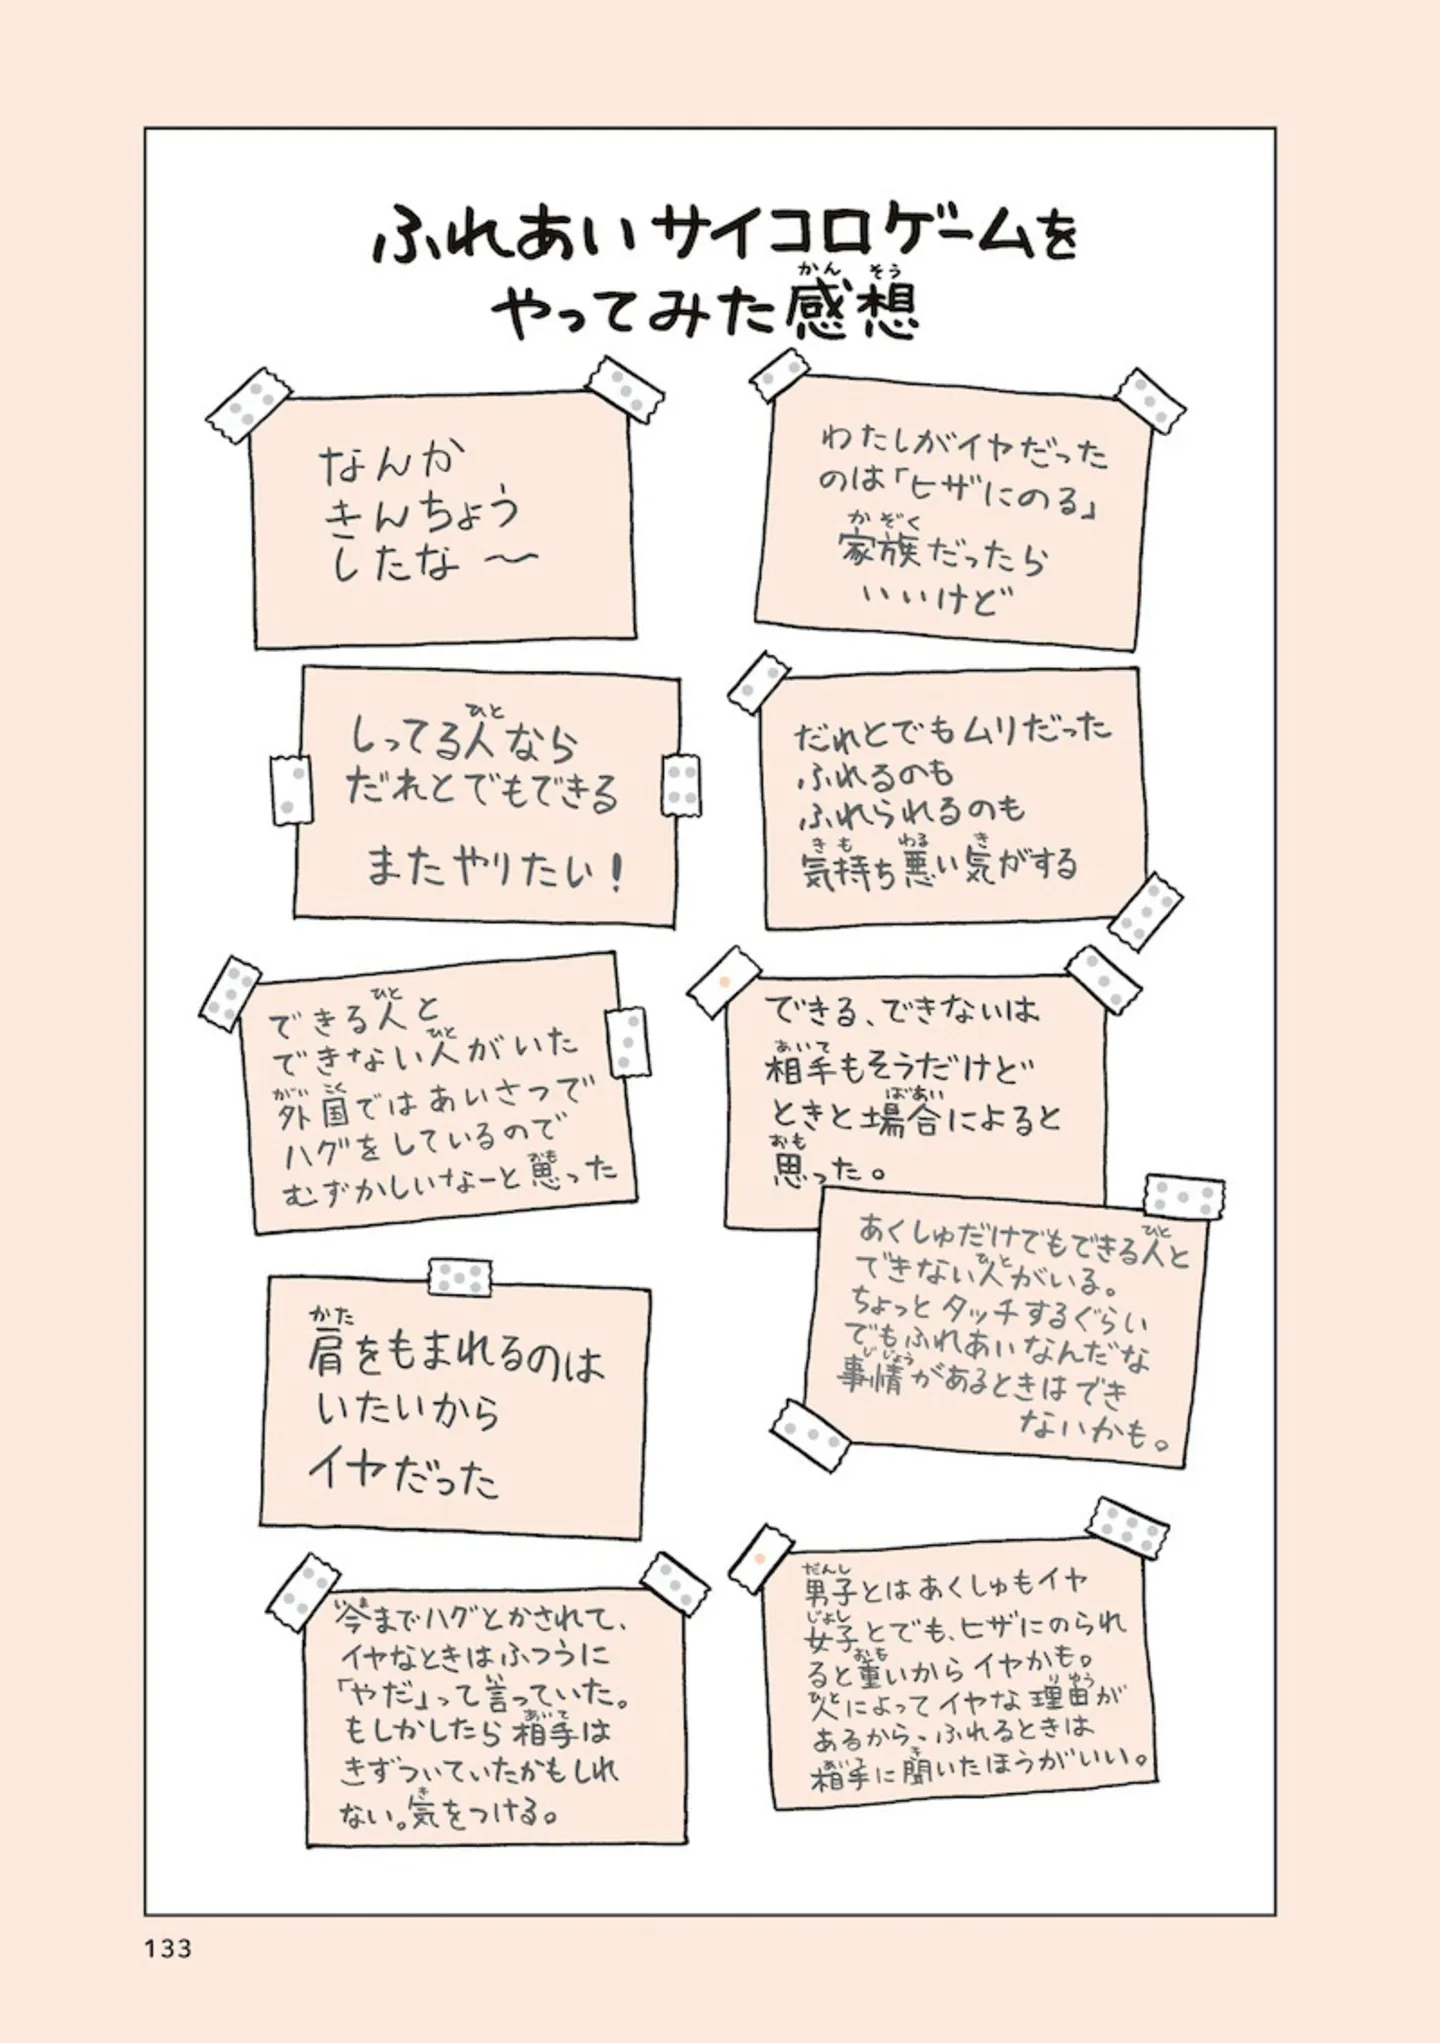 ふれあいサイコロゲームを
やってみた感想
なんか
きんちょう
したな〜
わたしがイヤだった
のは「ヒザにのる」
家族だったら
いいけど
しってる人なら
だれとでもできる
またやりたい！
だれとでもムリだった
ふれるのも
ふれられるのも
気持ち悪い気がする
できる人と
できない人がいた
外国ではあいさつで
ハグをしているので
むずかしいなーと思った
できる、できないは
相手もそうだけど
ときと場合によると
思った。
あくしゅだけでもできる人と
できない人がいる。
ちょっとタッチするぐらい
でもふれあいなんだな
事情があるときはでき
ないかも。
肩をもまれるのは
いたいから
イヤだった
今までハグとかされて、
イヤなときはふつうに
「やだ」って言っていた。
もしかしたら相手は
きずついていたかもしれ
ない。気をつける。
男子とはあくしゅもイヤ
女子とでも、ヒザにのられ
ると重いからイヤかも。
人によってイヤな理由が
あるから、ふれるときは
相手に聞いたほうがいい。
133